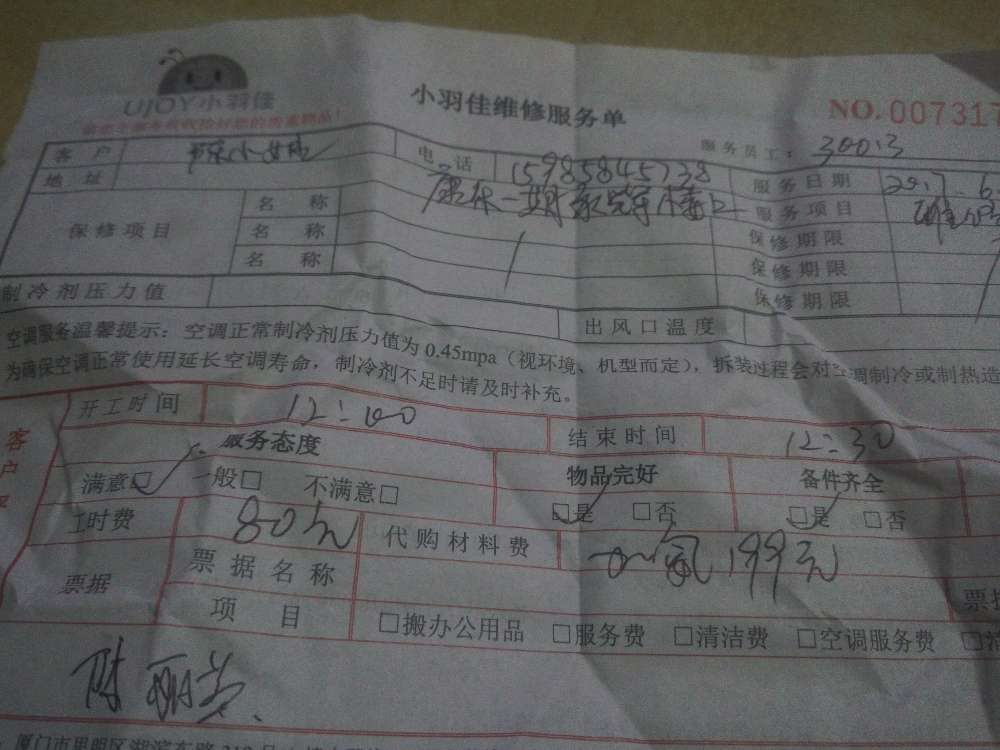 UJOY小羽佳
小羽佳维修服务单
NO.007317
服务员工: 30013
客户 小姐 电话 15985845738 服务日期
地址 康乐一期 服务项目
保修项目 名称 保修期限
名称 保修期限
名称 保修期限
制冷剂压力值 出风口温度
空调服务温馨提示:空调正常制冷剂压力值为0.45mpa(视环境、机型而定),拆装过程会对空调制冷或制热造
为确保空调正常使用延长空调寿命,制冷剂不足时请及时补充。
开工时间 12:00 结束时间 12:30
客户
服务态度 物品完好 备件齐全
满意□ 一般□ 不满意□ □是 □否 □是 □否
工时费 80元 代购材料费 加氟199元
票据 票据名称
项目 □搬办公用品 □服务费 □清洁费 □空调服务费
陈丽